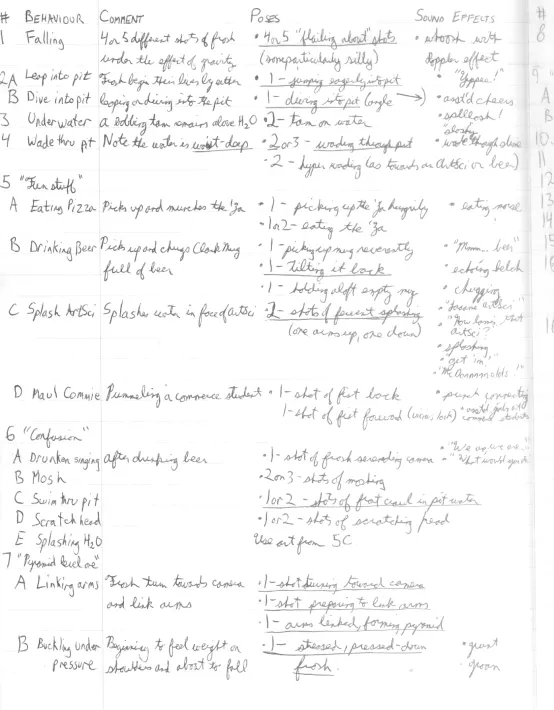 # BEHAVIOUR COMMENT POSES SOUND EFFECTS #
1 Falling 4 or 5 different shots of frosh • 4 or 5 "flailing about" shots • whoosh with 8
under the effect of gravity (some particularly silly) doppler effect
2A Leap into pit Frosh begin their lives by either • 1 - jumping eagerly into pit • "Yippee!" 9
B Dive into pit leaping or diving into the pit • 1 - diving into pit (angle →) • ass'd cheers A
3 Underwater a bobbing tam remains above H2O • 2 - tam on water • spllloosh! B
4 Wade thru pit Note the water is waist-deep • 2 or 3 - wading through pit 10
• 2 - hyper wading (as towards an ArtSci or beer) 11
12
5 "Fun stuff"
A Eating Pizza Picks up and munches the 'Za • 1 - picking up the 'Za hungrily • eating noise 13
• 1 or 2 - eating the 'Za 14
B Drinking Beer Picks up and chugs Clark Mug • 1 - picking up mug reverently • "Mmm.. beer" 15
full of beer • 1 - Tilting it back • echoing belch 16
• 1 - holding aloft empty mug • chugging
C Splash ArtSci Splashes water in face of artsci • 2 - shots of fervent splashing
(one arms up, one down) artsci?"
• splashing
• "get 'im!"
D Maul Commie Pummeling a commerce student • 1 - shot of fist back • punch connecting
1 - shot of fist forward
6 "Confusion"
A Drunken singing after drinking beer • 1 - shot of frosh serenading camera • "We are, we are..."
B Mosh • 2 or 3 - shots of moshing
C Swim thru pit • 1 or 2 - shots of front crawl in pit water
D Scratch head • 1 or 2 - shots of scratching head
E Splashing H2O Use art from 5C
7 "Pyramid
A Linking arms Frosh turn towards camera • 1 - shot turning toward camera
and link arms • 1 - shot preparing to link arms
• 1 - arms linked, forming pyramid
B Buckling under Beginning to feel weight on • 1 - stressed, pressed-down • grunt
pressure shoulders and about to fall frosh. • groan